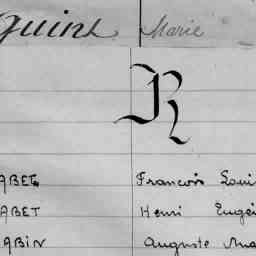 quint Marie
R
ABEL Francois Loui
ABET Henri Eugè
ABIN Auguste Ma